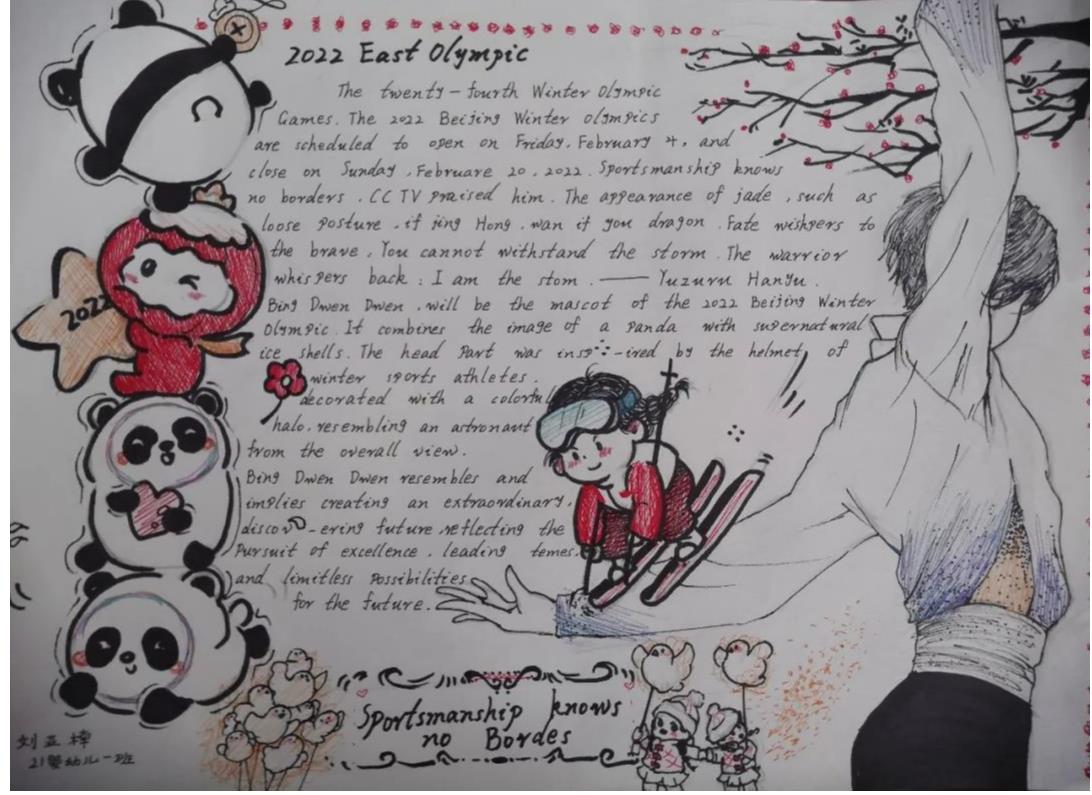 2022 East Olympic
The twenty-fourth Winter Olympic
Games. The 2022 Beijing Winter olympics
are scheduled to open on Friday, February 4, and
close on Sunday, Februare 20, 2022. Sportsmanship knows
no borders. CCTV praised him. The appearance of jade, such as
loose posture, if jing Hong, wan if you dragon. Fate wishpers to
the brave, You cannot withstand the storm. The warrior
whispers back: I am the stom. —— Yuzuru Hanyu.
2022
Bing Dwen Dwen, will be the mascot of the 2022 Beijing Winter
Olympic. It combines the image of a panda with supernatural
ice shells. The head Part was insp-ired by the helmet of
winter sports athletes.
decorated with a colorful
halo, resembling an astronaut
from the overall view.
Bing Dwen Dwen resembles and
implies creating an extraordinary,
discov-ering future, reflecting the
Pursuit of excellence, leading temes,
and limitless Possibilities
for the future.
Sportsmanship knows
no Bordes
刘亚梓
21婴幼儿一班